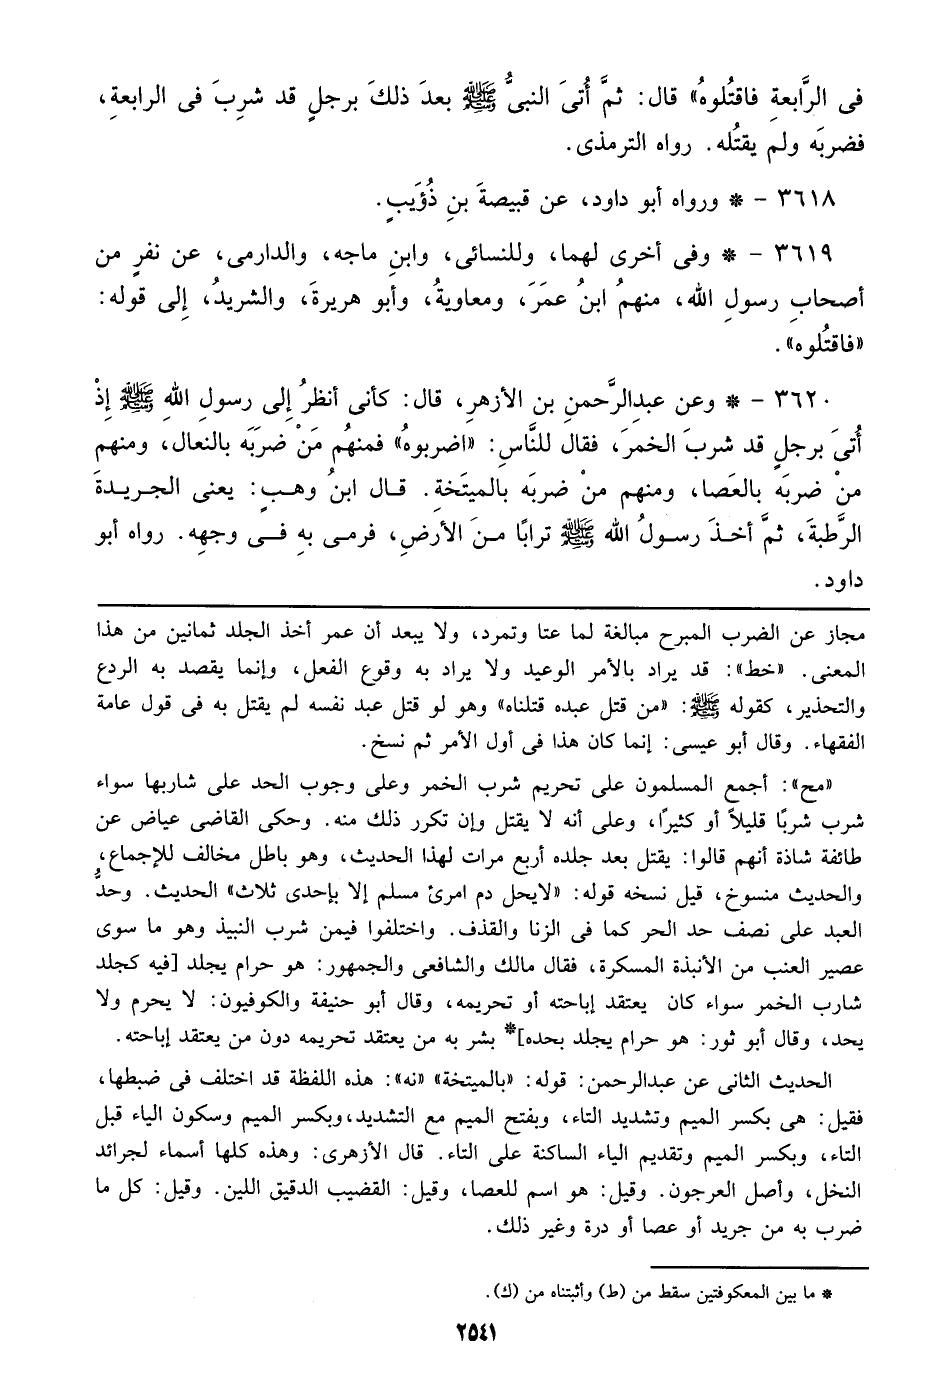 فى الرَّابعةِ فاقتُلوهُ» قال: ثمَّ أُتىَ النبىُّ ﷺ بعدَ ذلكَ برجلٍ قد شرِبَ فى الرابعةِ،
فضربَه ولم يقتُله. رواه الترمذى.
٣٦١٨ – * ورواه أبو داود، عن قبيصةَ بنِ ذُؤَيبٍ.
٣٦١٩ – * وفى أخرى لهما، وللنسائى، وابنِ ماجه، والدارمى، عن نفرٍ من
أصحابِ رسولِ الله، منهمُ ابنُ عمَرَ، ومعاويةُ، وأبو هريرةَ، والشريدُ، إلى قوله:
«فاقتُلوه».
٣٦٢٠ – * وعن عبدالرَّحمنِ بن الأزهرِ، قال: كأنى أنظرُ إلى رسولِ اللهِ ﷺ إذْ
أُتىَ برجلٍ قد شربَ الخمرَ، فقال للنَّاسِ: «اضربوهُ» فمنهُم مَنْ ضربَه بالنعال، ومنهم
منْ ضربَه بالعَصا، ومنهم منْ ضربَه بالميتَخةِ. قال ابنُ وهبٍ: يعنى الجريدةَ
الرَّطبةَ، ثمَّ أخذَ رسولُ الله ﷺ ترابًا منَ الأرضِ، فرمى بهِ فى وجهِه. رواه أبو
داود.
مجاز عن الضرب المبرح مبالغة لما عتا وتمرد، ولا يبعد أن عمر أخذ الجلد ثمانين من هذا
المعنى. «خط»: قد يراد بالأمر الوعيد ولا يراد به وقوع الفعل، وإنما يقصد به الردع
والتحذير، كقوله ﷺ: «من قتل عبده قتلناه» وهو لو قتل عبد نفسه لم يقتل به فى قول عامة
الفقهاء. وقال أبو عيسى: إنما كان هذا فى أول الأمر ثم نسخ.
«مح»: أجمع المسلمون على تحريم شرب الخمر وعلى وجوب الحد على شاربها سواء
شرب شربًا قليلاً أو كثيرًا، وعلى أنه لا يقتل وإن تكرر ذلك منه. وحكى القاضى عياض عن
طائفة شاذة أنهم قالوا: يقتل بعد جلده أربع مرات لهذا الحديث، وهو باطل مخالف للإجماع،
والحديث منسوخ، قيل نسخه قوله: «لايحل دم امرئ مسلم إلا بإحدى ثلاث» الحديث. وحدُّ
العبد على نصف حد الحر كما فى الزنا والقذف. واختلفوا فيمن شرب النبيذ وهو ما سوى
عصير العنب من الأنبذة المسكرة، فقال مالك والشافعى والجمهور: هو حرام يجلد [فيه كجلد
شارب الخمر سواء كان يعتقد إباحته أو تحريمه، وقال أبو حنيفة والكوفيون: لا يحرم ولا
يحد، وقال أبو ثور: هو حرام يجلد بحده]* بشر به من يعتقد تحريمه دون من يعتقد إباحته.
الحديث الثانى عن عبدالرحمن: قوله: «بالميتخة» «نه»: هذه اللفظة قد اختلف فى ضبطها،
فقيل: هى بكسر الميم وتشديد التاء، وبفتح الميم مع التشديد، وبكسر الميم وسكون الياء قبل
التاء، وبكسر الميم وتقديم الياء الساكنة على التاء. قال الأزهرى: وهذه كلها أسماء لجرائد
النخل، وأصل العرجون. وقيل: هو اسم للعصا، وقيل: القضيب الدقيق اللين. وقيل: كل ما
ضرب به من جريد أو عصا أو درة وغير ذلك.
* ما بين المعكوفتين سقط من (ط) وأثبتناه من (ك).
٢٥٤١